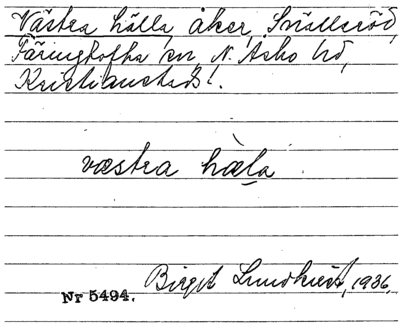 Västra hälla, åker, Snälleröd,
Färingtofta sn, N. Åsbo hd,
Kristianstads l.
væstra hæla
Birgit Lundkvist, 1936.
Nr 5494.